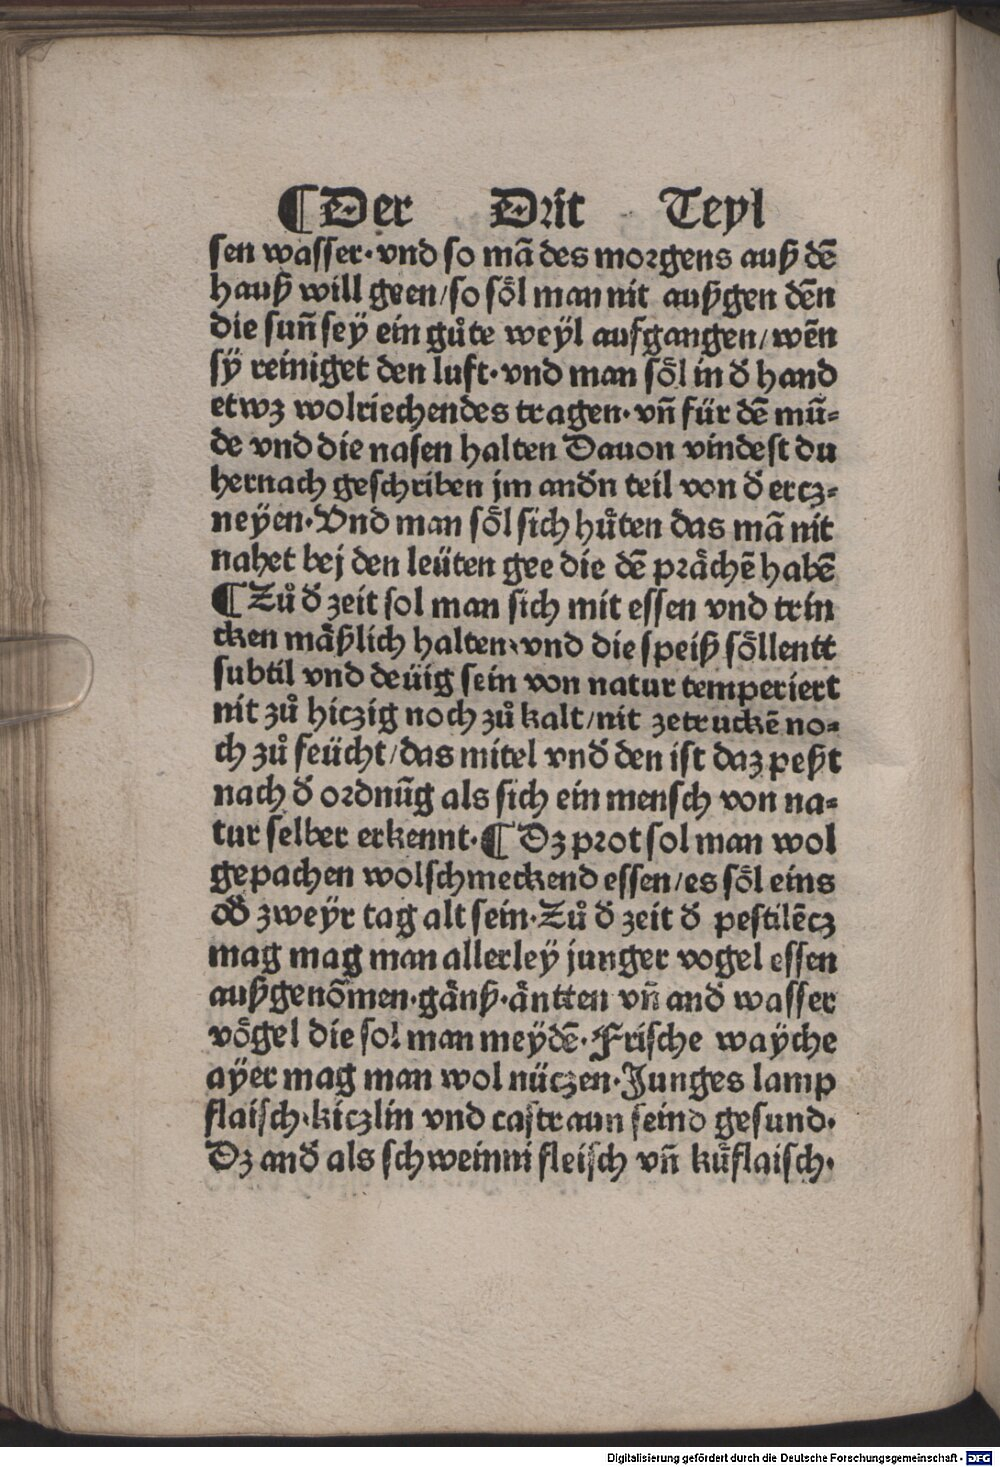 ¶Der Drit Teyl
sen wasser·vnd so mā des morgens auß dē
hauß will geen/so soͤl man nit außgen dēn
die sun̄ sey ein guͦte weyl aufgangen/wēn
sÿ reiniget den luft·vnd man soͤl in đ hand
etwz wolriechendes tragen·vn̄ für dē mū⸗
de vnd die nasen halten Dauon vindest du
hernach geschriben jm anđn teil von đ ercz⸗
neyen·Vnd man soͤl sich huͤten das mā nit
nahet bej den leüten gee die dē praͤchē habē
¶Zuͦ đ zeit sol man sich mit essen vnd trin
cken maͤßlich halten·vnd die speiß soͤllentt
subtil vnd deüig sein von natur temperiert
nit zuͦ hiczig noch zuͦ kalt/nit zetruckē no⸗
ch zuͦ feücht/das mitel vnđ den ist daz peßt
nach đ ordnūg als sich ein mensch von na⸗
tur selber erkennt·¶Dz prot sol man wol
gepachen wolschmeckend essen/es soͤl eins
ođ zweyr tag alt sein·Zuͦ đ zeit đ pestilēcz
mag mag man allerley junger vogel essen
außgenōmen·gaͤnß·aͤntten vn̄ anđ wasser
voͤgel die sol man meydē·Frische wayche
ayer mag man wol nüczen·Junges lamp
flaisch·kiczlin vnd castraun seind gesund·
Dz anđ als schweinni fleisch vn̄ kuͤflaisch·
Digitalisierung gefördert durch die Deutsche Forschungsgemeinschaft - DFG